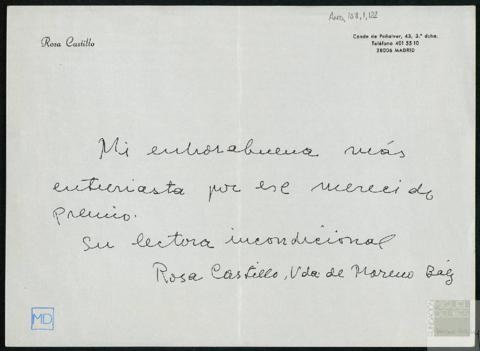 Auto, 158, 1, 122
Rosa Castillo
Conde de Peñalver, 43, 3.º dcha.
Teléfono 401 55 10
28006 MADRID
Mi enhorabuena más
entusiasta por ese merecido
premio.
Su lectora incondicional
Rosa Castillo, Vda. de Moreno Báez
MD
FUNDACIÓN
MIGUEL
DELIBES